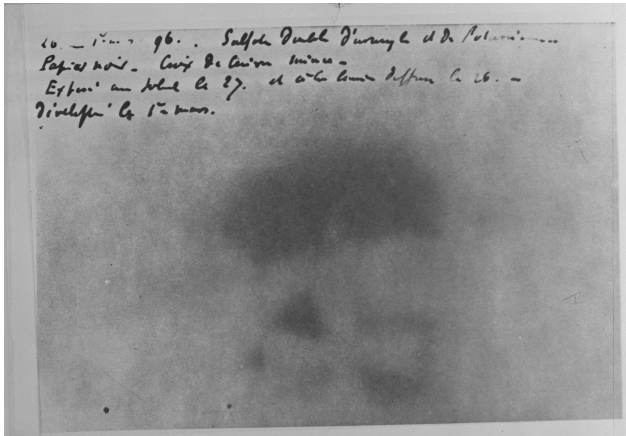 26. - 1er mars 96. . Sulfate double d'uranyle et de Potassium
Papier noir - Croix de cuivre mince -
Exposé au soleil le 27. et à la lumière diffuse le 26. -
Développé le 1er mars.